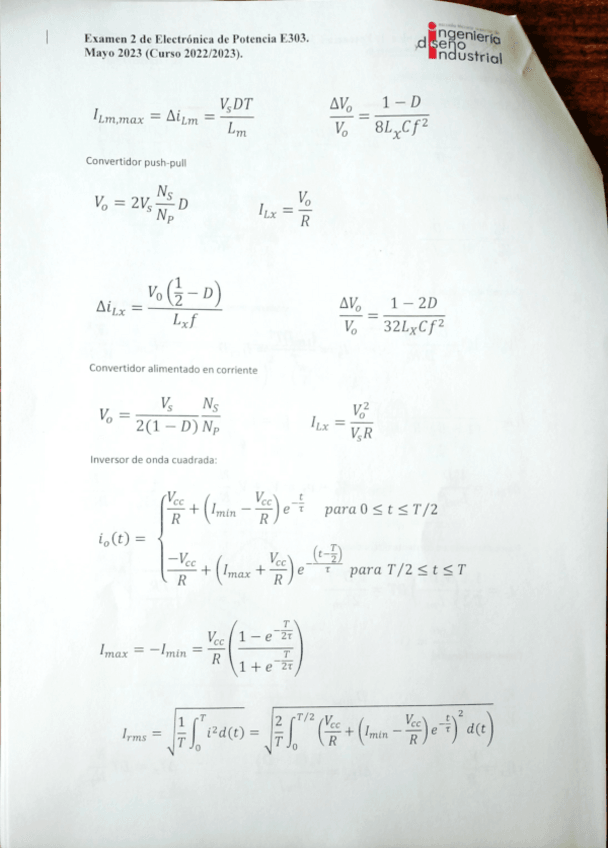 Examen 2 de Electrónica de Potencia E303.
Mayo 2023 (Curso 2022/2023).
ingeniería
diseño
industrial
I_{Lm,max} = Δi_{Lm} = \frac{V_s DT}{L_m}    \frac{ΔV_o}{V_o} = \frac{1 − D}{8L_x Cf^2}
Convertidor push-pull
V_o = 2V_s \frac{N_S}{N_P} D    I_{Lx} = \frac{V_o}{R}
Δi_{Lx} = \frac{V_o (\frac{1}{2} − D)}{L_x f}    \frac{ΔV_o}{V_o} = \frac{1 − 2D}{32L_X Cf^2}
Convertidor alimentado en corriente
V_o = \frac{V_s}{2(1 − D)} \frac{N_S}{N_P}    I_{Lx} = \frac{V_o^2}{V_s R}
Inversor de onda cuadrada:
i_o(t) = { \frac{V_{cc}}{R} + (I_{min} − \frac{V_{cc}}{R}) e^{−\frac{t}{τ}}    para 0 ≤ t ≤ T/2
\frac{−V_{cc}}{R} + (I_{max} + \frac{V_{cc}}{R}) e^{−\frac{(t−\frac{T}{2})}{τ}}    para T/2 ≤ t ≤ T
I_{max} = −I_{min} = \frac{V_{cc}}{R} (\frac{1 − e^{−\frac{T}{2τ}}}{1 + e^{−\frac{T}{2τ}}})
I_{rms} = \sqrt{\frac{1}{T} ∫_0^T i^2 d(t)} = \sqrt{\frac{2}{T} ∫_0^{T/2} (\frac{V_{cc}}{R} + (I_{min} − \frac{V_{cc}}{R}) e^{−\frac{t}{τ}})^2 d(t)}